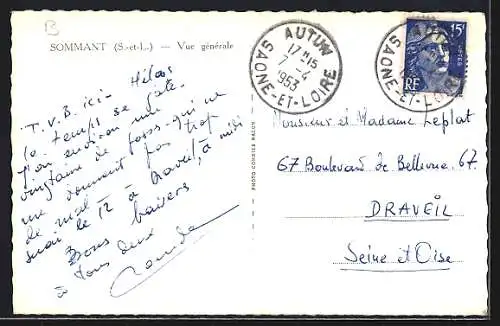 B
SOMMANT (S.-et-L.) — Vue générale
T.V.B. ici - Hélas
le temps se gâte.
J'ai environ une
vingtaine de gosses qui ne
me donnent pas trop
de mal.
serai le 12 à Draveil, à midi
Bons baisers
à tous deux
PHOTO COMBIER MACON
AUTUN
17H15
7 -4
1953
SAONE-ET-LOIRE
AUTUN
SAONE-ET-LOIRE
15F
RF
Monsieur et Madame Leplat
67 Boulevard de Bellevue. 67.
DRAVEIL
Seine et Oise